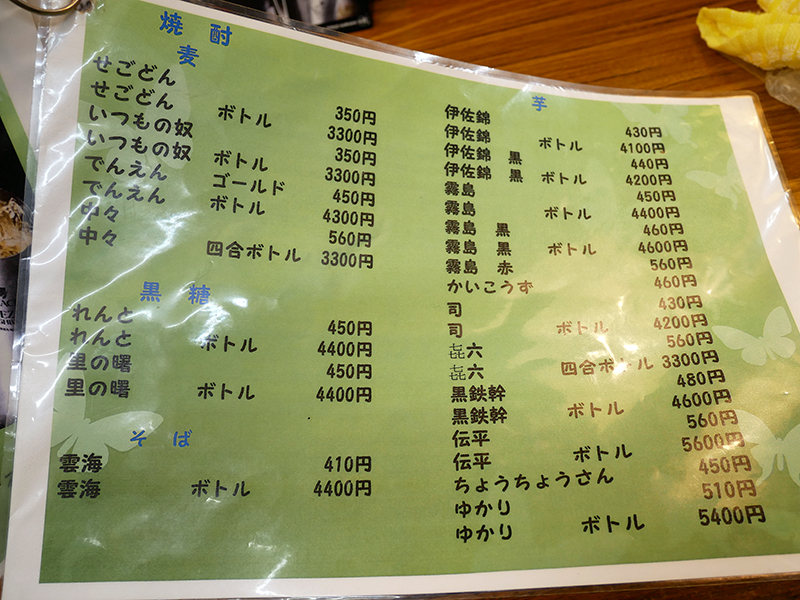 焼酎
麦
せごどん 350円
せごどん ボトル 3300円
いつもの奴 350円
いつもの奴 ボトル 3300円
でんえん ゴールド 450円
でんえん ボトル 4300円
中々 560円
中々 四合ボトル 3300円
黒糖
れんと 450円
れんと ボトル 4400円
里の曙 450円
里の曙 ボトル 4400円
そば
雲海 410円
雲海 ボトル 4400円
芋
伊佐錦 430円
伊佐錦 ボトル 4100円
伊佐錦 黒 440円
伊佐錦 黒 ボトル 4200円
霧島 450円
霧島 ボトル 4400円
霧島 黒 460円
霧島 黒 ボトル 4600円
霧島 赤 560円
かいこうず 460円
司 430円
司 ボトル 4200円
㐂六 560円
㐂六 四合ボトル 3300円
黒鉄幹 480円
黒鉄幹 ボトル 4600円
伝平 560円
伝平 ボトル 5600円
ちょうちょうさん 450円
ゆかり 510円
ゆかり ボトル 5400円